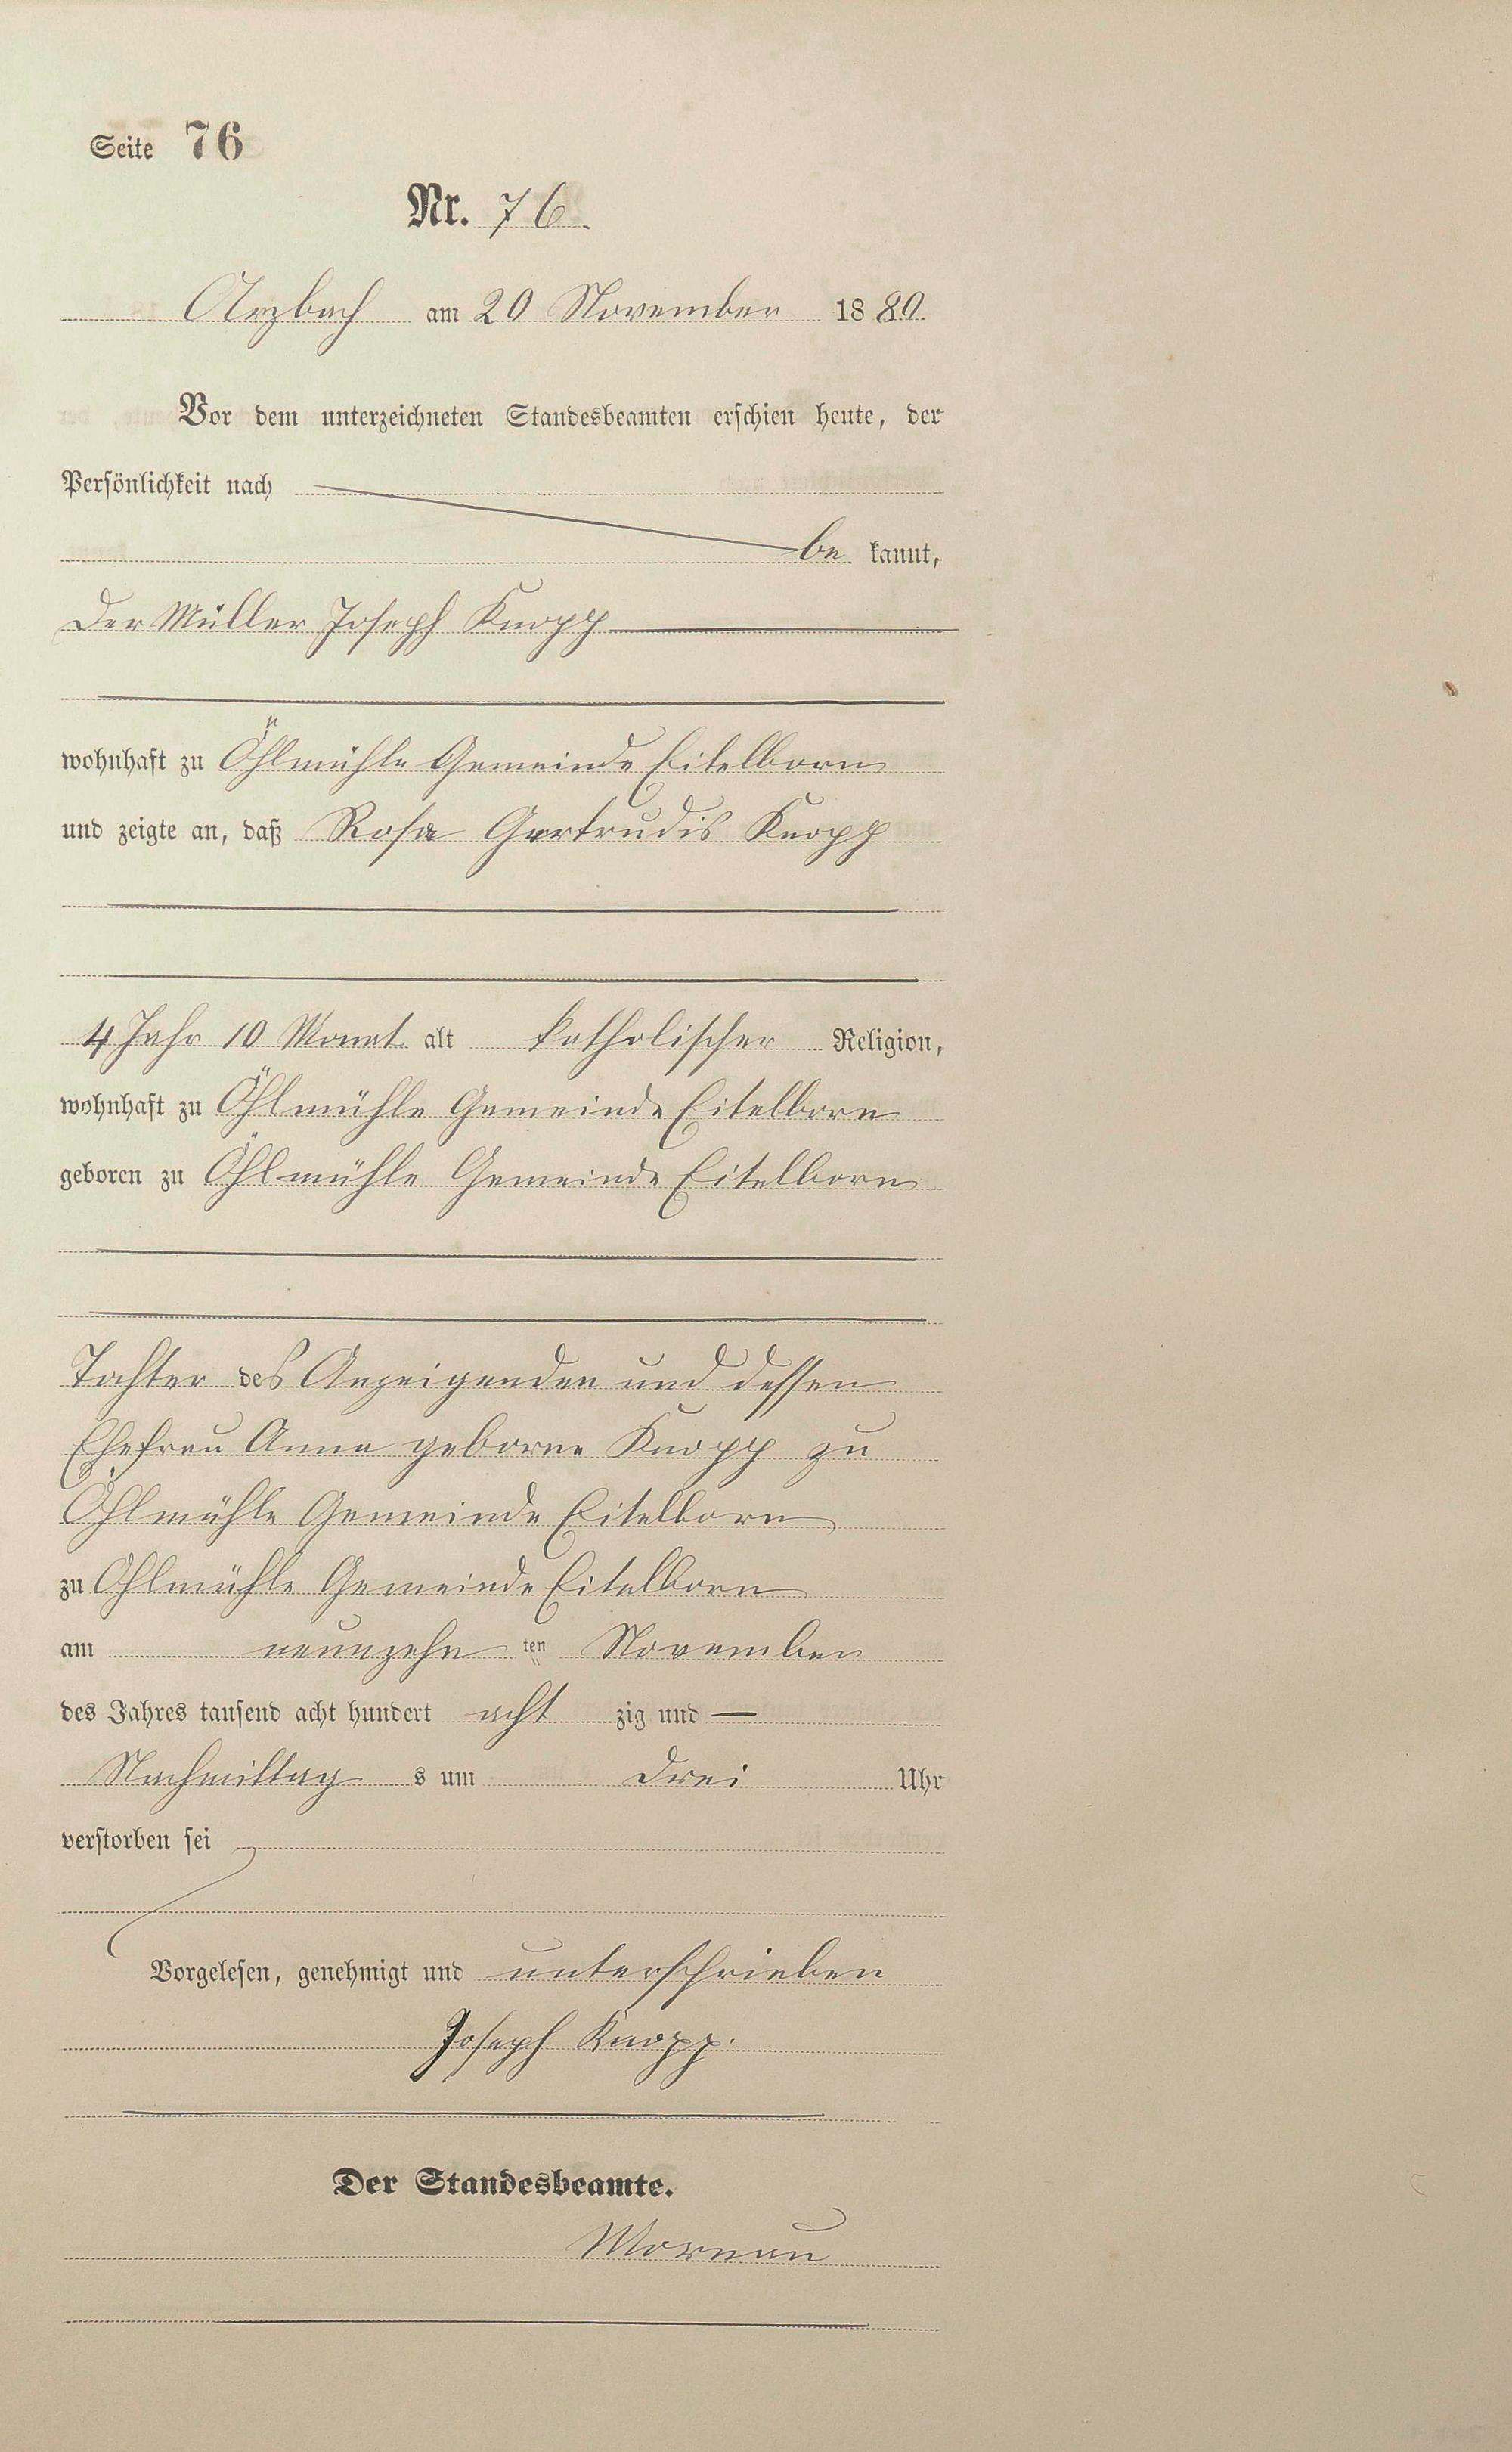 Seite 76
Nr. 76.
Arzbach am 20 November 1880.
Vor dem unterzeichneten Standesbeamten erschien heute, der
Persönlichkeit nach
be kannt,
der Müller Joseph Knopp
wohnhaft zu Öhlmühle Gemeinde Eitelborn
und zeigte an, daß Rosa Gertrudis Knopp
4 Jahr 10 Monat alt katholischer Religion,
wohnhaft zu Öhlmühle Gemeinde Eitelborn
geboren zu Öhlmühle Gemeinde Eitelborn
Tochter des Anzeigenden und dessen
Ehefrau Anna geborne Knopp zu
Öhlmühle Gemeinde Eitelborn
zu Ohlmühle Gemeinde Eitelborn
am neunzehn ten November
des Jahres tausend acht hundert acht zig und —
Nachmittag s um drei Uhr
verstorben sei
Vorgelesen, genehmigt und unterschrieben
Joseph Knopp.
Der Standesbeamte.